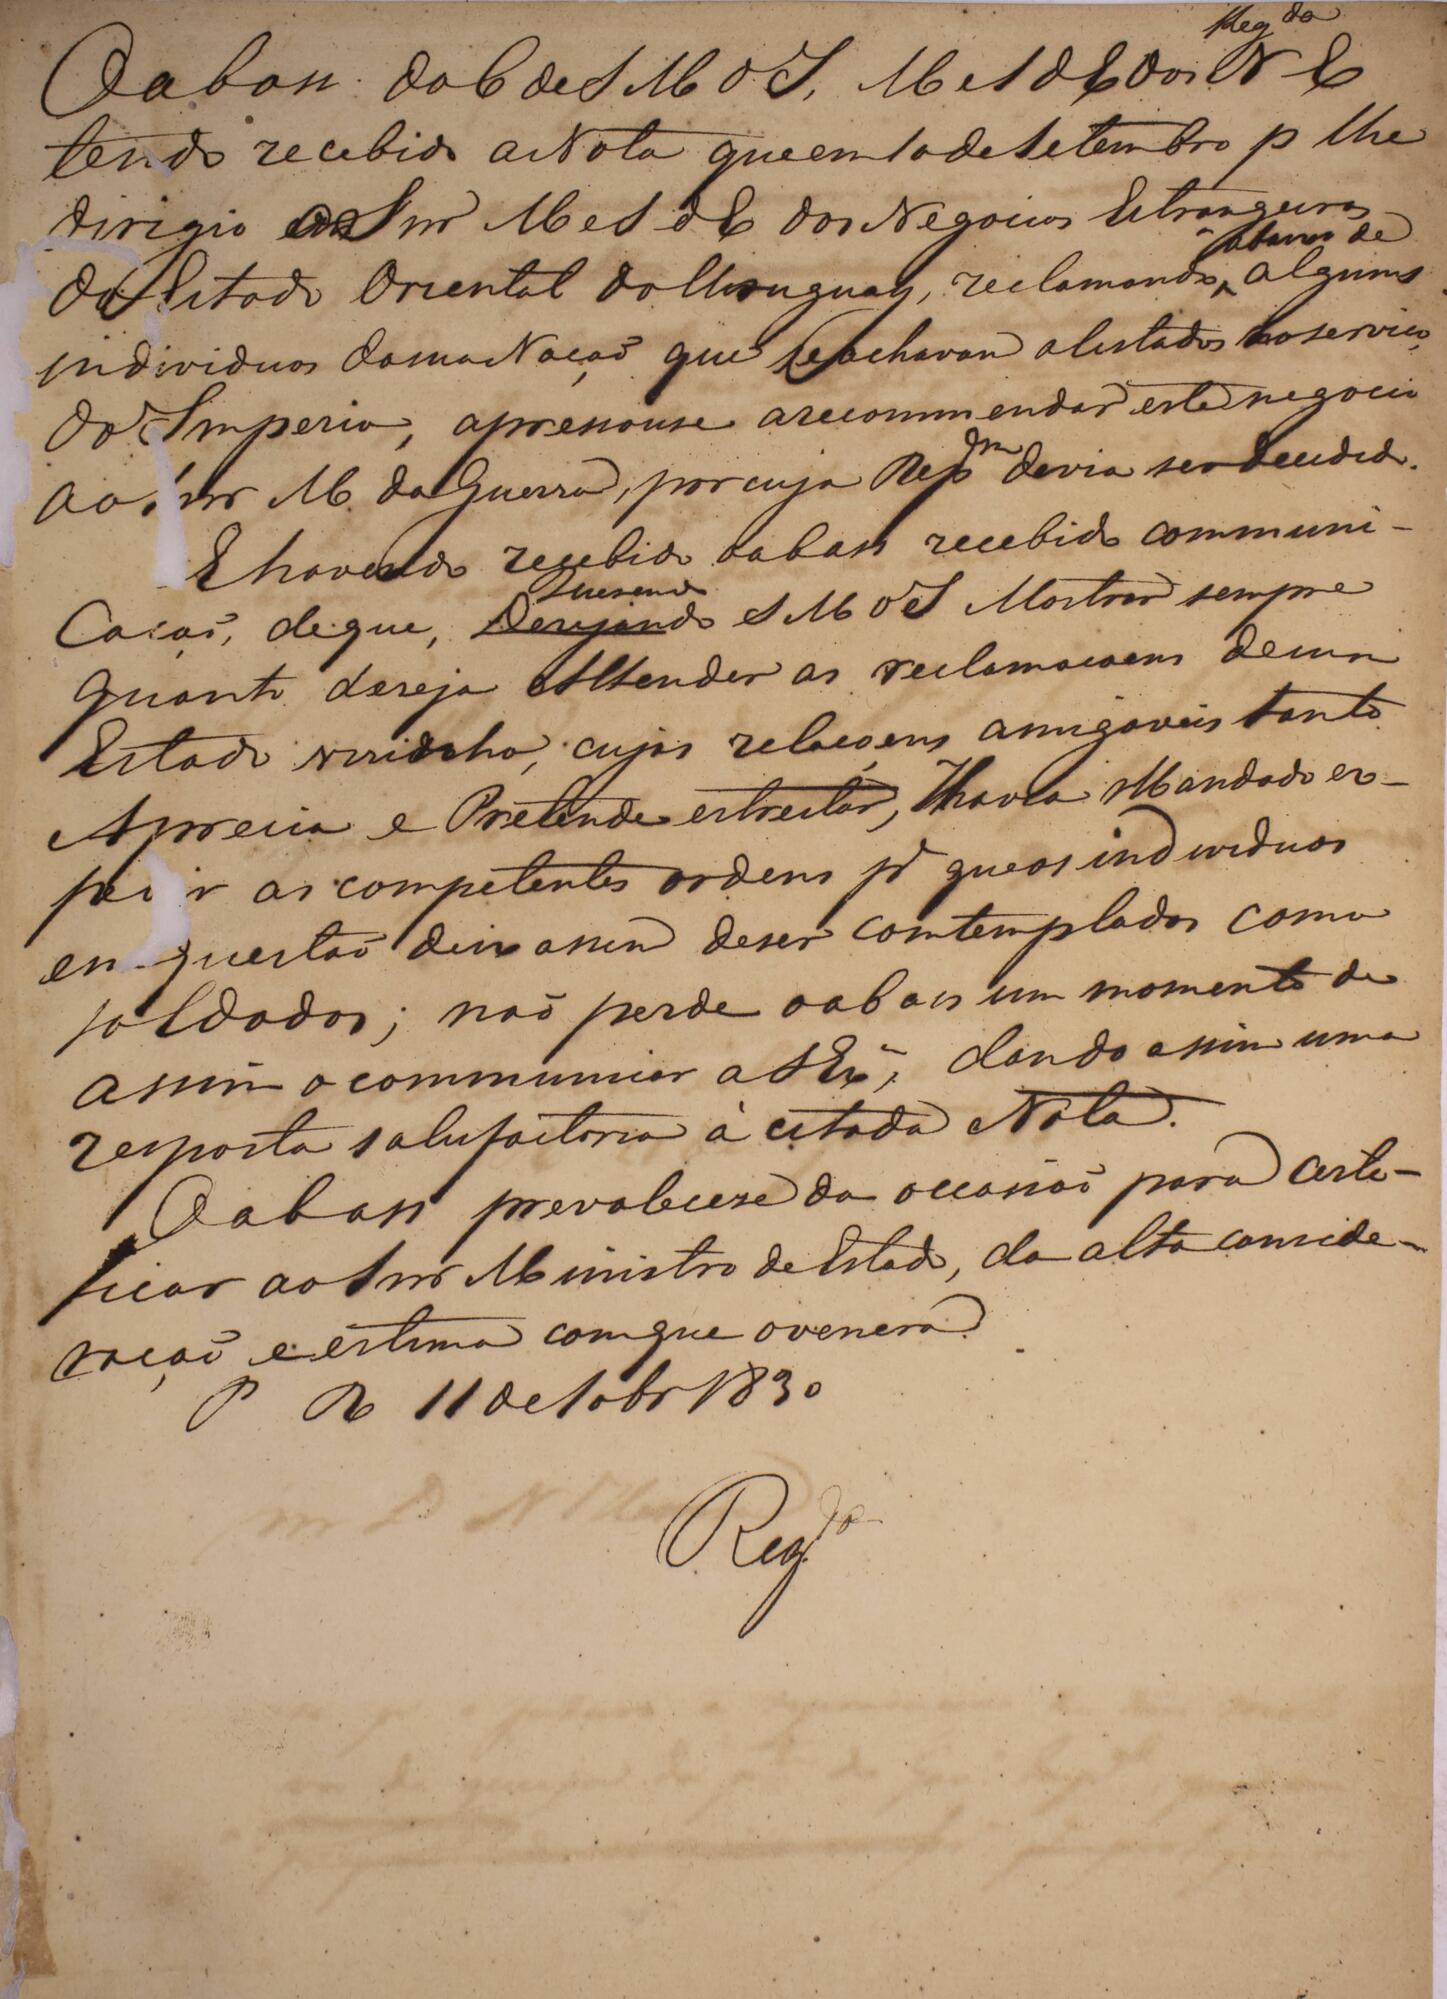 Reg.do
O abass. do C de S M O I, M e S d E dos N E
tendo recebido a Nota que em 10 de Setembro p lhe
dirigio o Snr M e S d E dos Negocios Estrangeiros
do Estado Oriental do Uruguay, reclamando, a baixa de alguns
individuos da sua Nação que se achavan alistados no serviço
do Imperio, apressouse a recommendar este negocio
ao Snr M. da Guerra, por cuja Repam devia ser decidido.
E havendo recebido o abass recebido communi-
Cação, de que, Desejando Querendo S M O I Mostrar sempre
quanto deseja Attender as reclamaçoens de um
Estado visinho, cujas relaçoens amigaveis tanto
Aprecia e Pretende estreitar, Havia Mandado ex-
pedir as competentes ordens pa que os individuos
en questão deixassem de ser comtemplados como
soldados; não perde o abass um momento de
assim o communicar a S Ex, dando assim uma
resposta satisfactoria á citada Nota.
O abass prevalecese da occasião para certi-
ficar ao Snr Ministro de Estado, da alta conside-
ração e estima com que o venera.
P R 11 de 8obr 1830
Reg.do